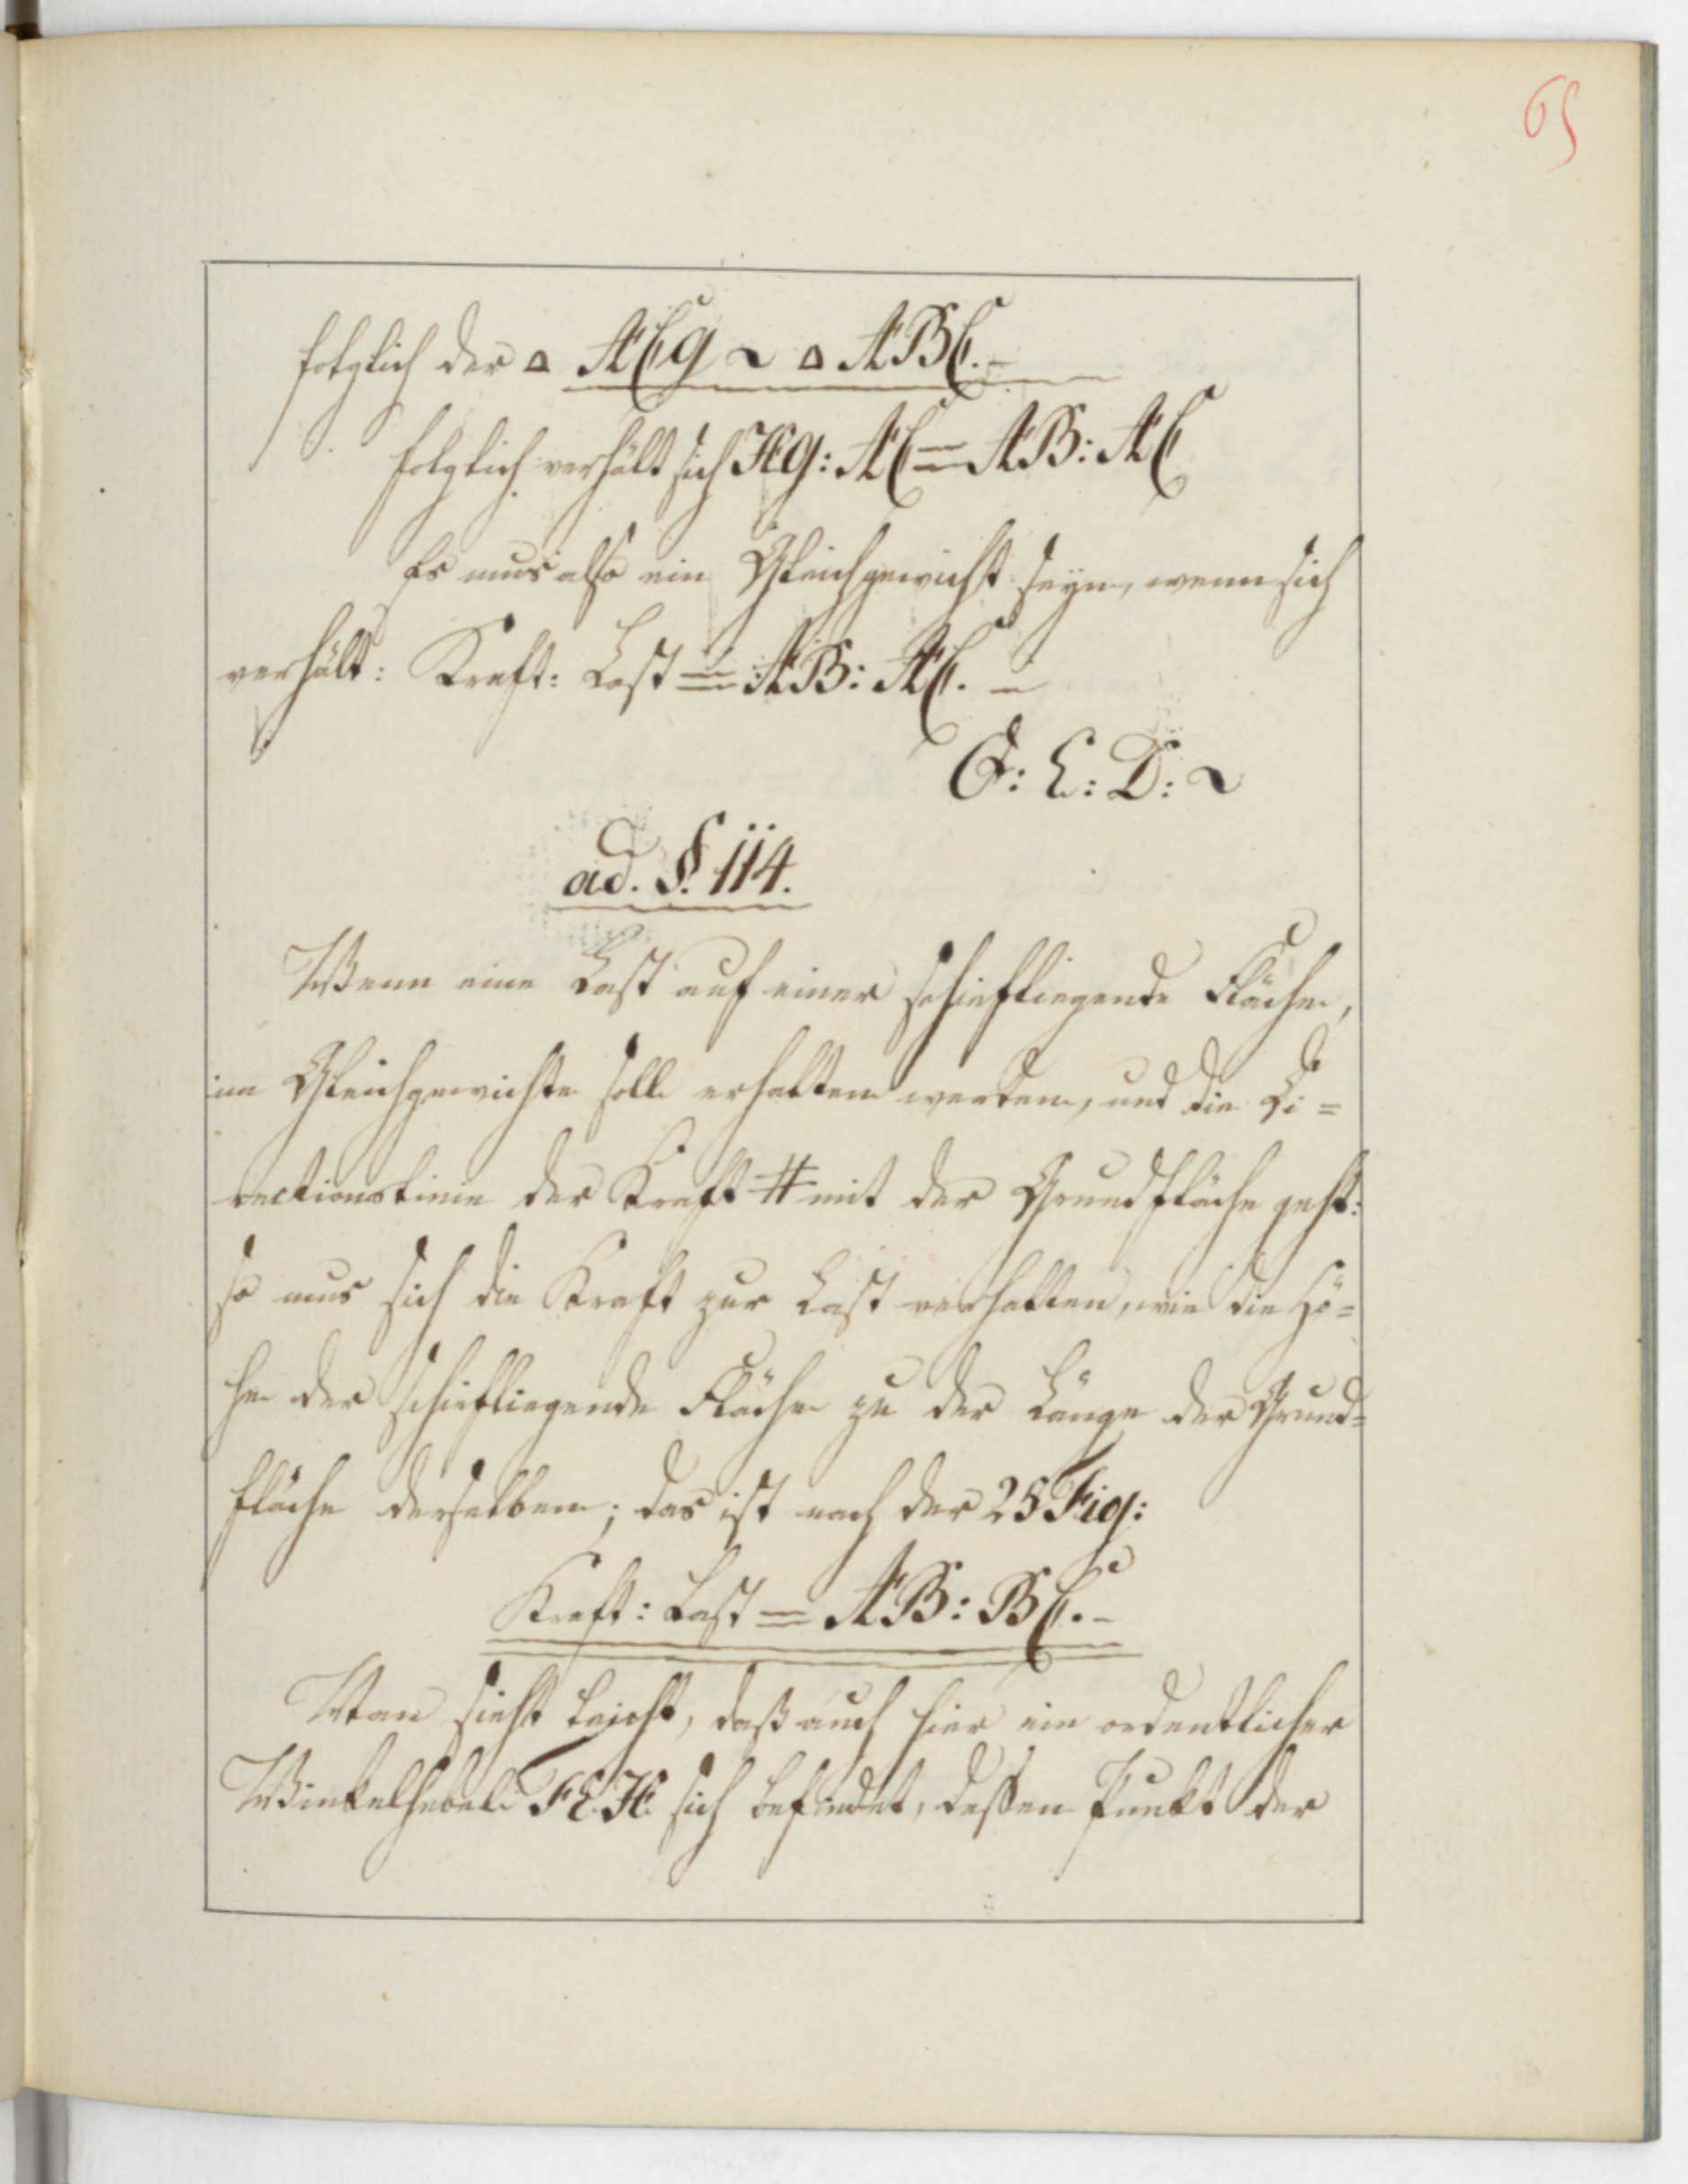 65
folglich der ▵ ACg ~ ▵ ABC. –
folglich verhält sich Hg: AC = AB: AC
Es mus also ein Gleichgewicht seyn, wenn sich
verhält: Kraft: Last = AB: AC. –
Q: E: D: ~
ad. §. 114.
Wenn eine Last auf einer schiefliegende Fläche,
im Gleichgewichte soll erhalten werden, und die Di=
rectionslinie der Kraft # mit der Grundfläche geht:
so mus sich die Kraft zur Last verhalten, wie die Hö=
he der schiefliegende Fläche zu der Länge der Grund=
fläche derselben; das ist nach der 25 Fig:
Kraft: Last = AB: BC. –
Man sieht leicht, daß auch hier ein ordentlicher
Winkelhebel FEH sich befindet, dessen Punkt der